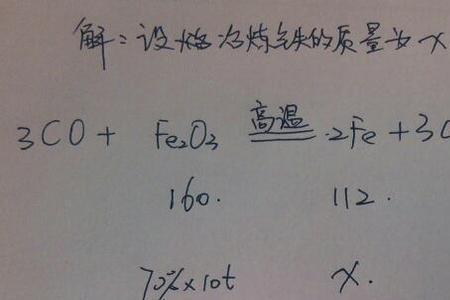 解:设能冶炼铁的质量为x
3CO + Fe₂O₃ 高温 2Fe + 3C
160. 112.
70%×10t x.